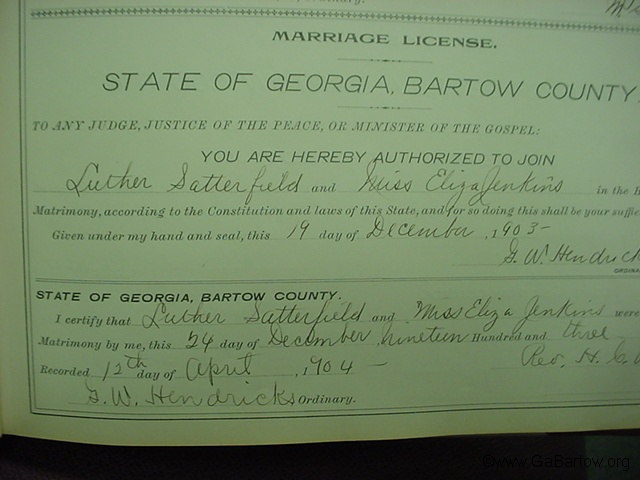 MARRIAGE LICENSE.
STATE OF GEORGIA, BARTOW COUNTY.
TO ANY JUDGE, JUSTICE OF THE PEACE, OR MINISTER OF THE GOSPEL:
YOU ARE HEREBY AUTHORIZED TO JOIN
Luther Satterfield and Miss Eliza Jenkins in the
Matrimony, according to the Constitution and laws of this State, and for so doing this shall be your
Given under my hand and seal, this 19 day of December, 1903-
G. W. Hendrick
STATE OF GEORGIA, BARTOW COUNTY.
I certify that Luther Satterfield and Miss Eliza Jenkins were
Matrimony by me, this 24 day of December, nineteen Hundred and three
Rev. H. C.
Recorded 12th day of April, 1904 -
G. W. Hendricks Ordinary.
©www.GaBartow.org